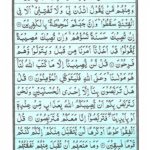 وَمِنْهُمْ مَّنْ يَّقُوْلُ ائْذَنْ لِّيْ وَلَا تَفْتِنِّيْ اَلَا فِي
الْفِتْنَةِ سَقَطُوْا وَاِنَّ جَهَنَّمَ لَمُحِيْطَةٌ بِالْكٰفِرِيْنَ
اِنْ تُصِبْكَ حَسَنَةٌ تَسُؤْهُمْ وَاِنْ تُصِبْكَ مُصِيْبَةٌ
يَّقُوْلُوْا قَدْ اَخَذْنَا اَمْرَنَا مِنْ قَبْلُ وَيَتَوَلَّوْا وَّهُمْ
فَرِحُوْنَ قُلْ لَّنْ يُّصِيْبَنَا اِلَّا مَا كَتَبَ اللّٰهُ لَنَا
هُوَ مَوْلٰىنَا وَعَلَى اللّٰهِ فَلْيَتَوَكَّلِ الْمُؤْمِنُوْنَ قُلْ هَلْ
تَرَبَّصُوْنَ بِنَا اِلَّا اِحْدَى الْحُسْنَيَيْنِ وَنَحْنُ
نَتَرَبَّصُ بِكُمْ اَنْ يُّصِيْبَكُمُ اللّٰهُ بِعَذَابٍ مِّنْ عِنْدِهٖ
اَوْ بِاَيْدِيْنَا فَتَرَبَّصُوْا اِنَّا مَعَكُمْ مُّتَرَبِّصُوْنَ قُلْ
اَنْفِقُوْا طَوْعًا اَوْ كَرْهًا لَّنْ يُّتَقَبَّلَ مِنْكُمْ اِنَّكُمْ كُنْتُمْ
قَوْمًا فٰسِقِيْنَ وَمَا مَنَعَهُمْ اَنْ تُقْبَلَ مِنْهُمْ نَفَقٰتُهُمْ